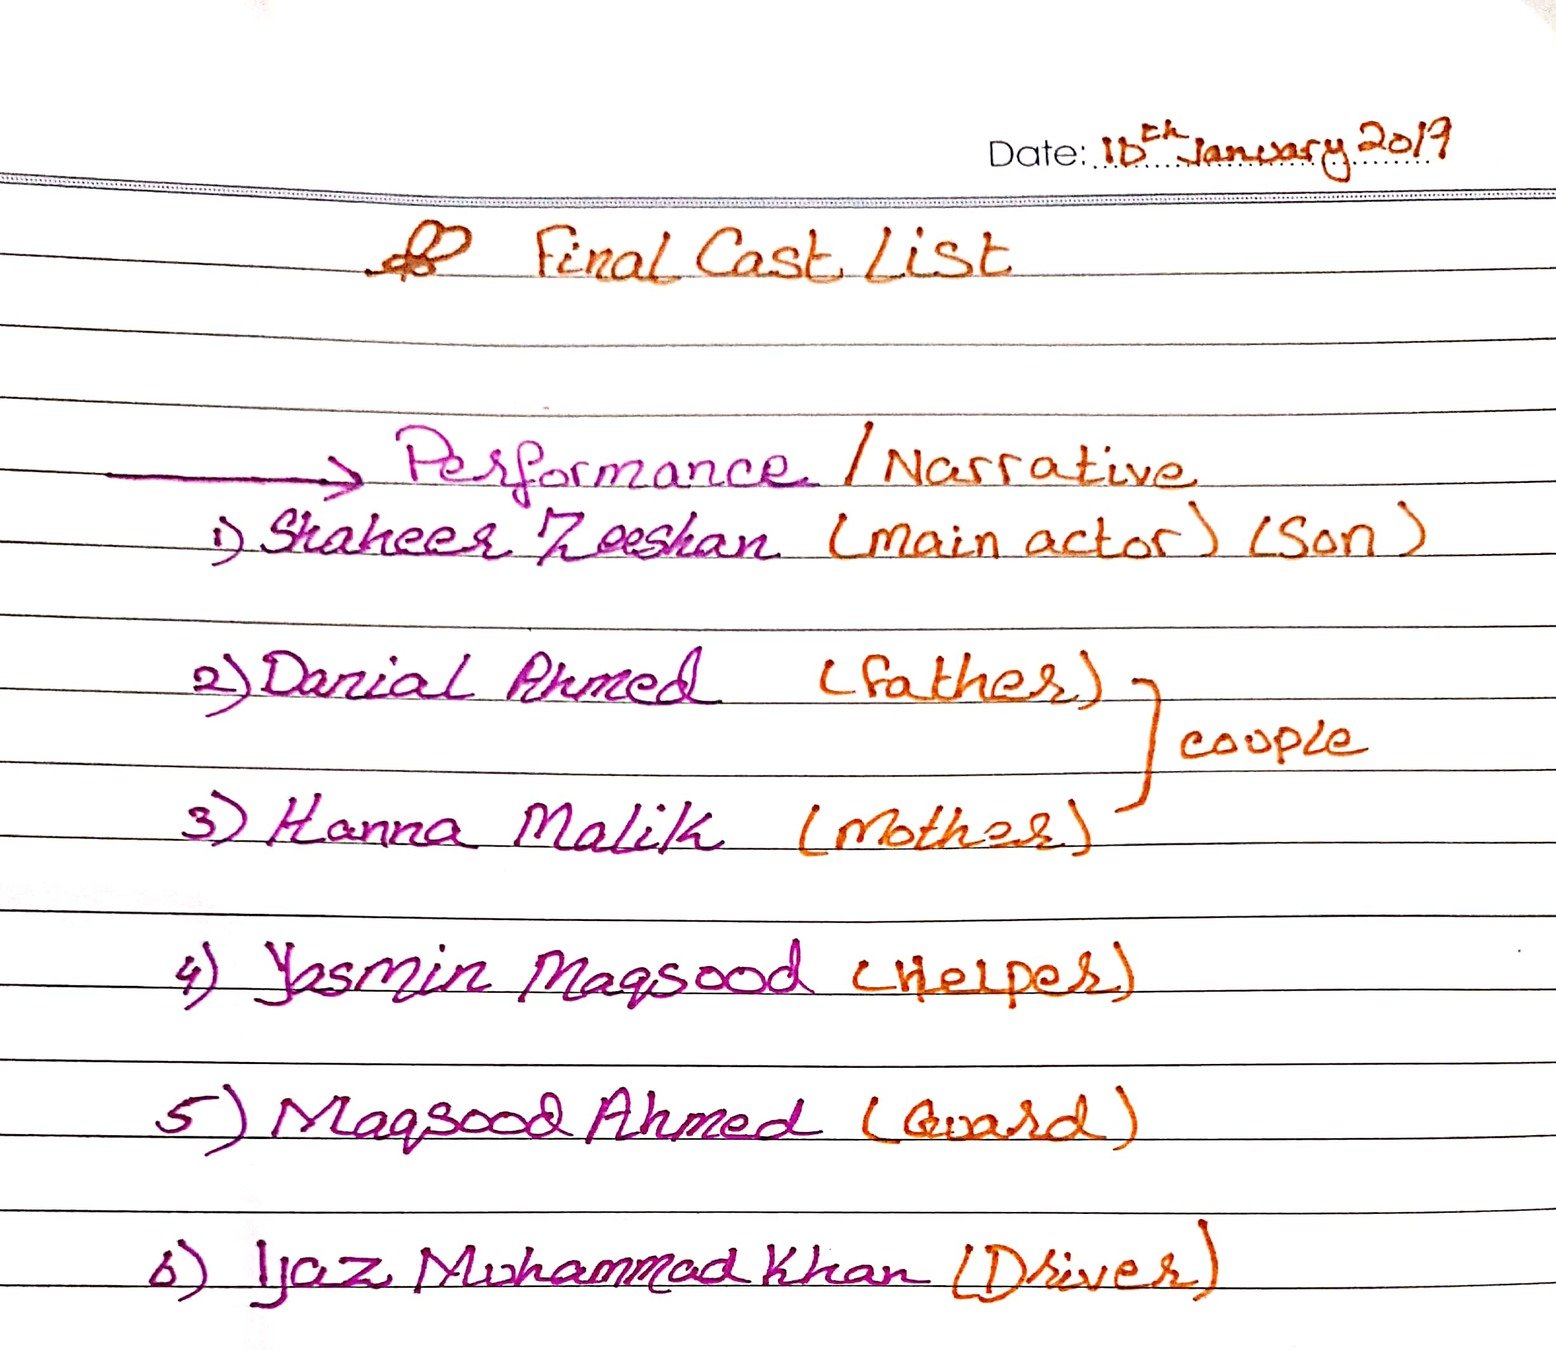 Date: 10th January 2019
Final Cast List
→ Performance / Narrative
1) Shaheer Zeeshan (Main actor) (Son)
2) Danial Ahmed (Father)
couple
3) Hanna Malik (Mother)
4) Yasmin Maqsood (Helper)
5) Maqsood Ahmed (Guard)
6) Ijaz Muhammad Khan (Driver)